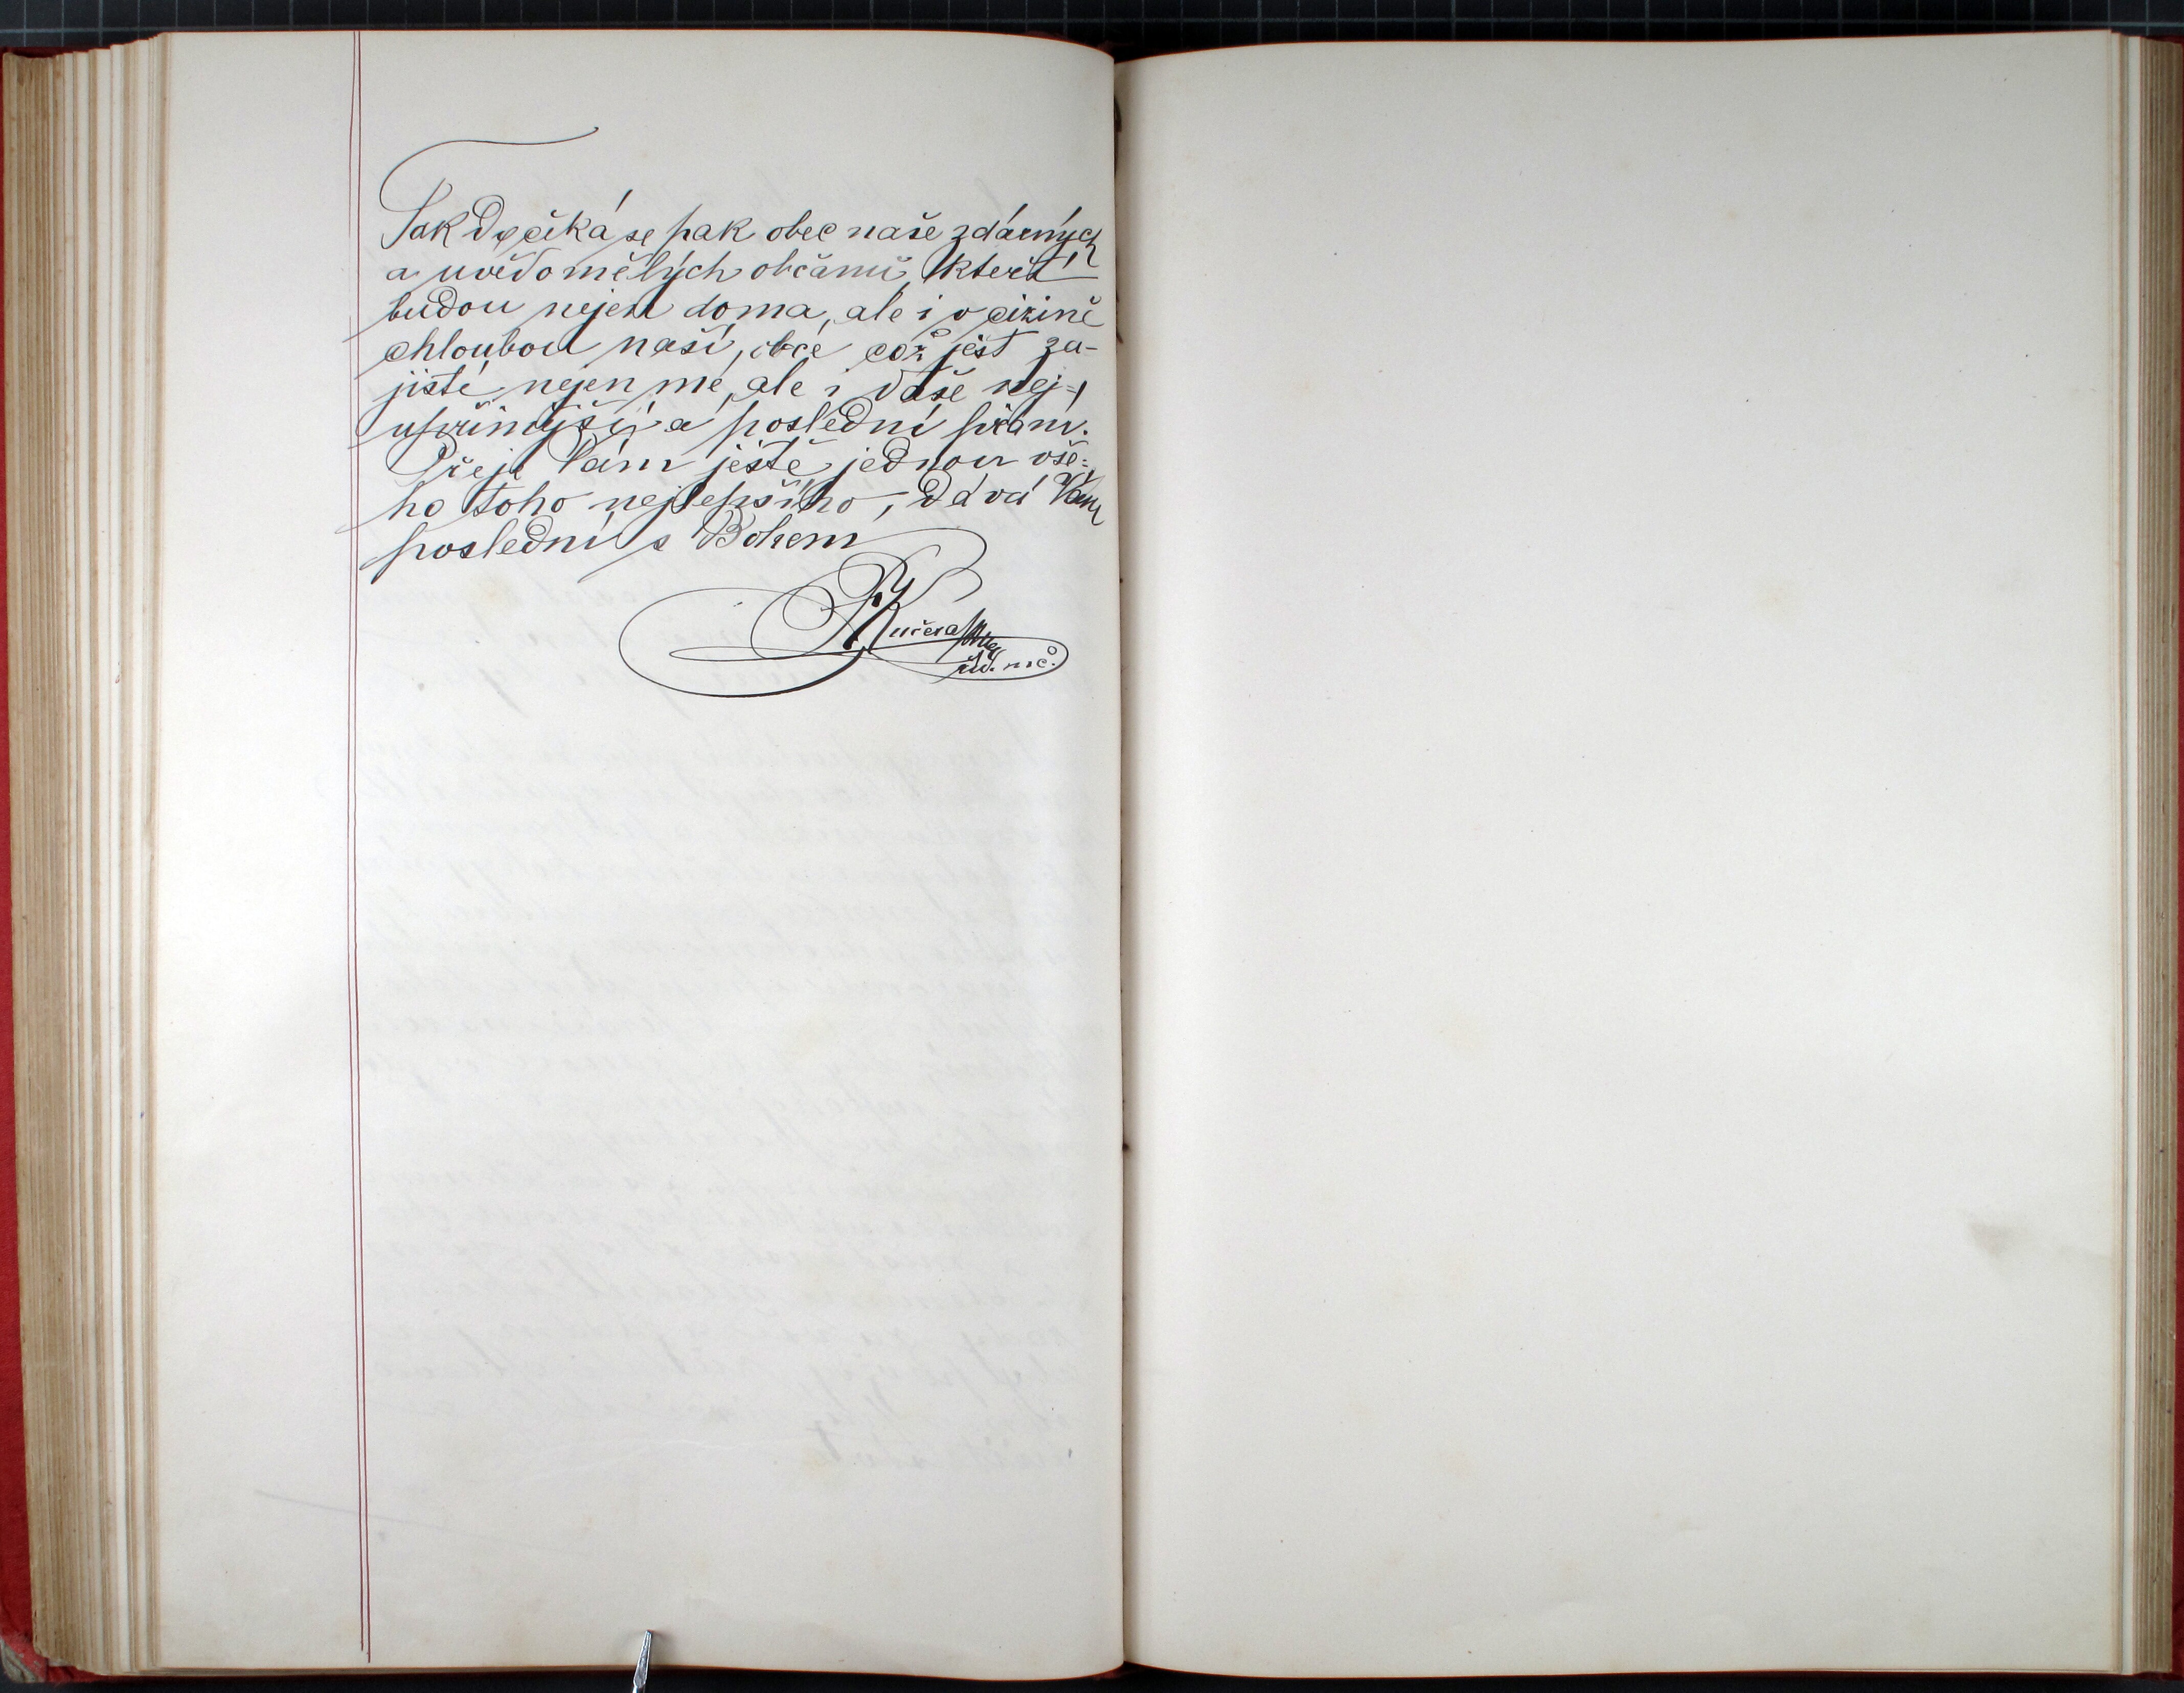 Tak dočká se pak obec naše zdárných
a uvědomělých občanů, kteří
budou nejen doma, ale i v cizině
chloubou naší, obce což jest za-
jisté nejen mé, ale i Vaše nej-
upřímnější a poslední přání.
Přeje Vám ještě jednou vše-
ho toho nejlepšího, dává Vám
poslední s Bohem
Kučera